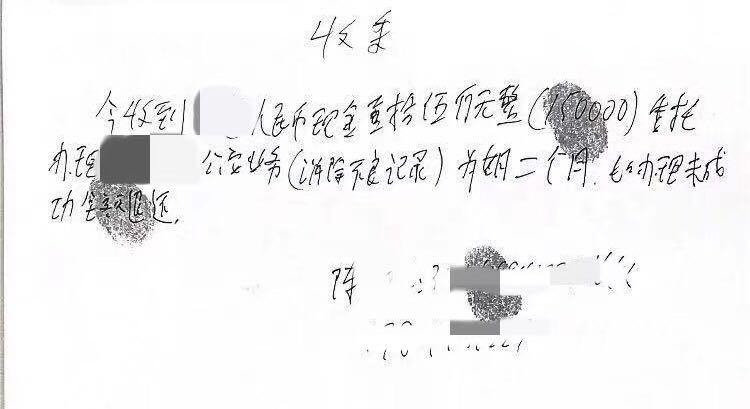 收条
今收到 人民币现金壹拾伍仟元整(150000)委托
办理 公安业务(消除不良记录)为期二个月.如办理未成
功全额退还.
陈